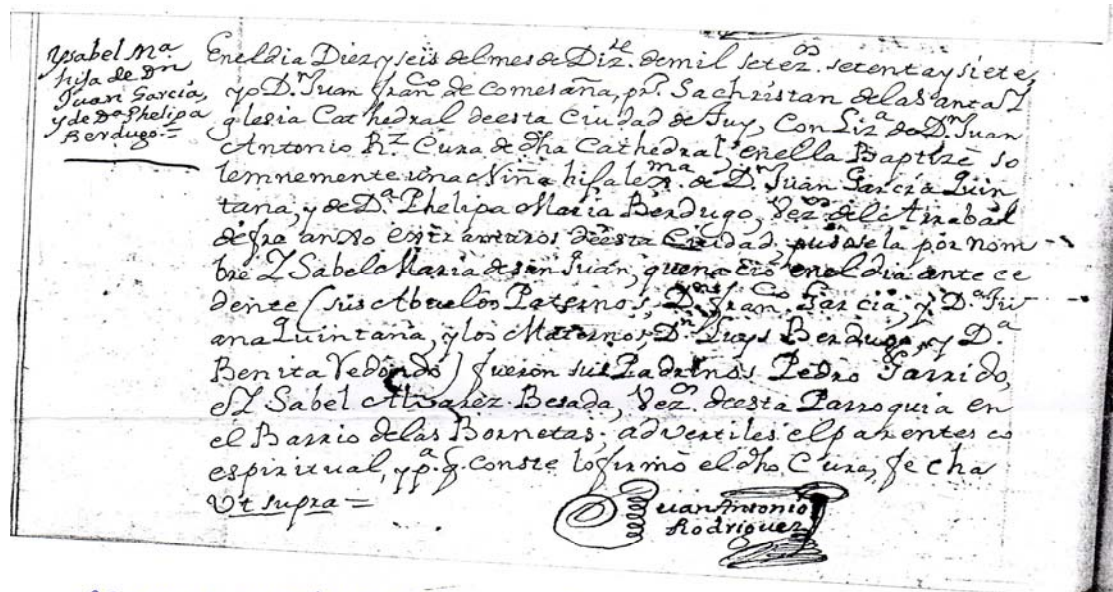 Ysabel Mª
hija de Dn
Juan García,
y de Dª Phelipa
Berdugo.=
En el dia Diez y seis del mes de Diz.re de mil setez.os setenta y siete,
yo D.n Juan Fran.co de Comesaña, pr. Sachristan de la Santa Y
glesia Cathedral de esta Ciudad de Tuy, con Liz.a de D.n Juan
Antonio R.z Cura de dha Cathedral, en ella Baptizè so
lemnemente una Niña hija lex.ma de D.n Juan García Quin
tana, y de D.a Phelipa Maria Berdugo, Vez.os del Arrabal
de fra an.xo extramuros de esta Ciudad, pusosele por nom
bre Y Sabel Maria de san Juan, que naciò en el dia ante ce
dente (sus Abuelos Paternos, D.n Fran.co Garcia, y D.a Ju
ana Quintana, y los Maternos D.n Luys Berdugo, y D.a
Benita Vedondo) fueron sus Padrinos Pedro Garrido,
è Y Sabel Alvarez Besada, Vez.os de esta Parroquia en
el Barrio de las Bornetas; advertiles el parentes co
espiritual, y p.a q. conste lo firmò el dho Cura, fecha
Vt supra=
Juan Antonio
Rodriguez